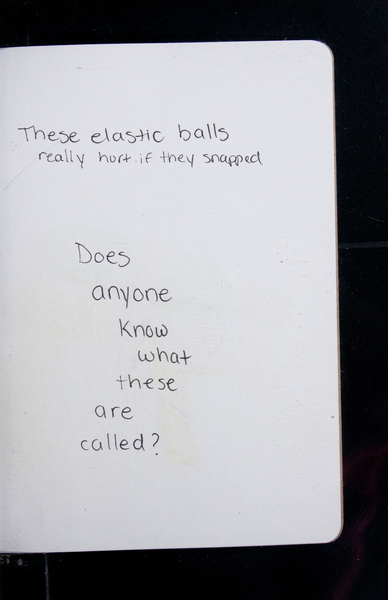 These elastic balls
really hurt if they snapped
Does
anyone
Know
what
these
are
called?